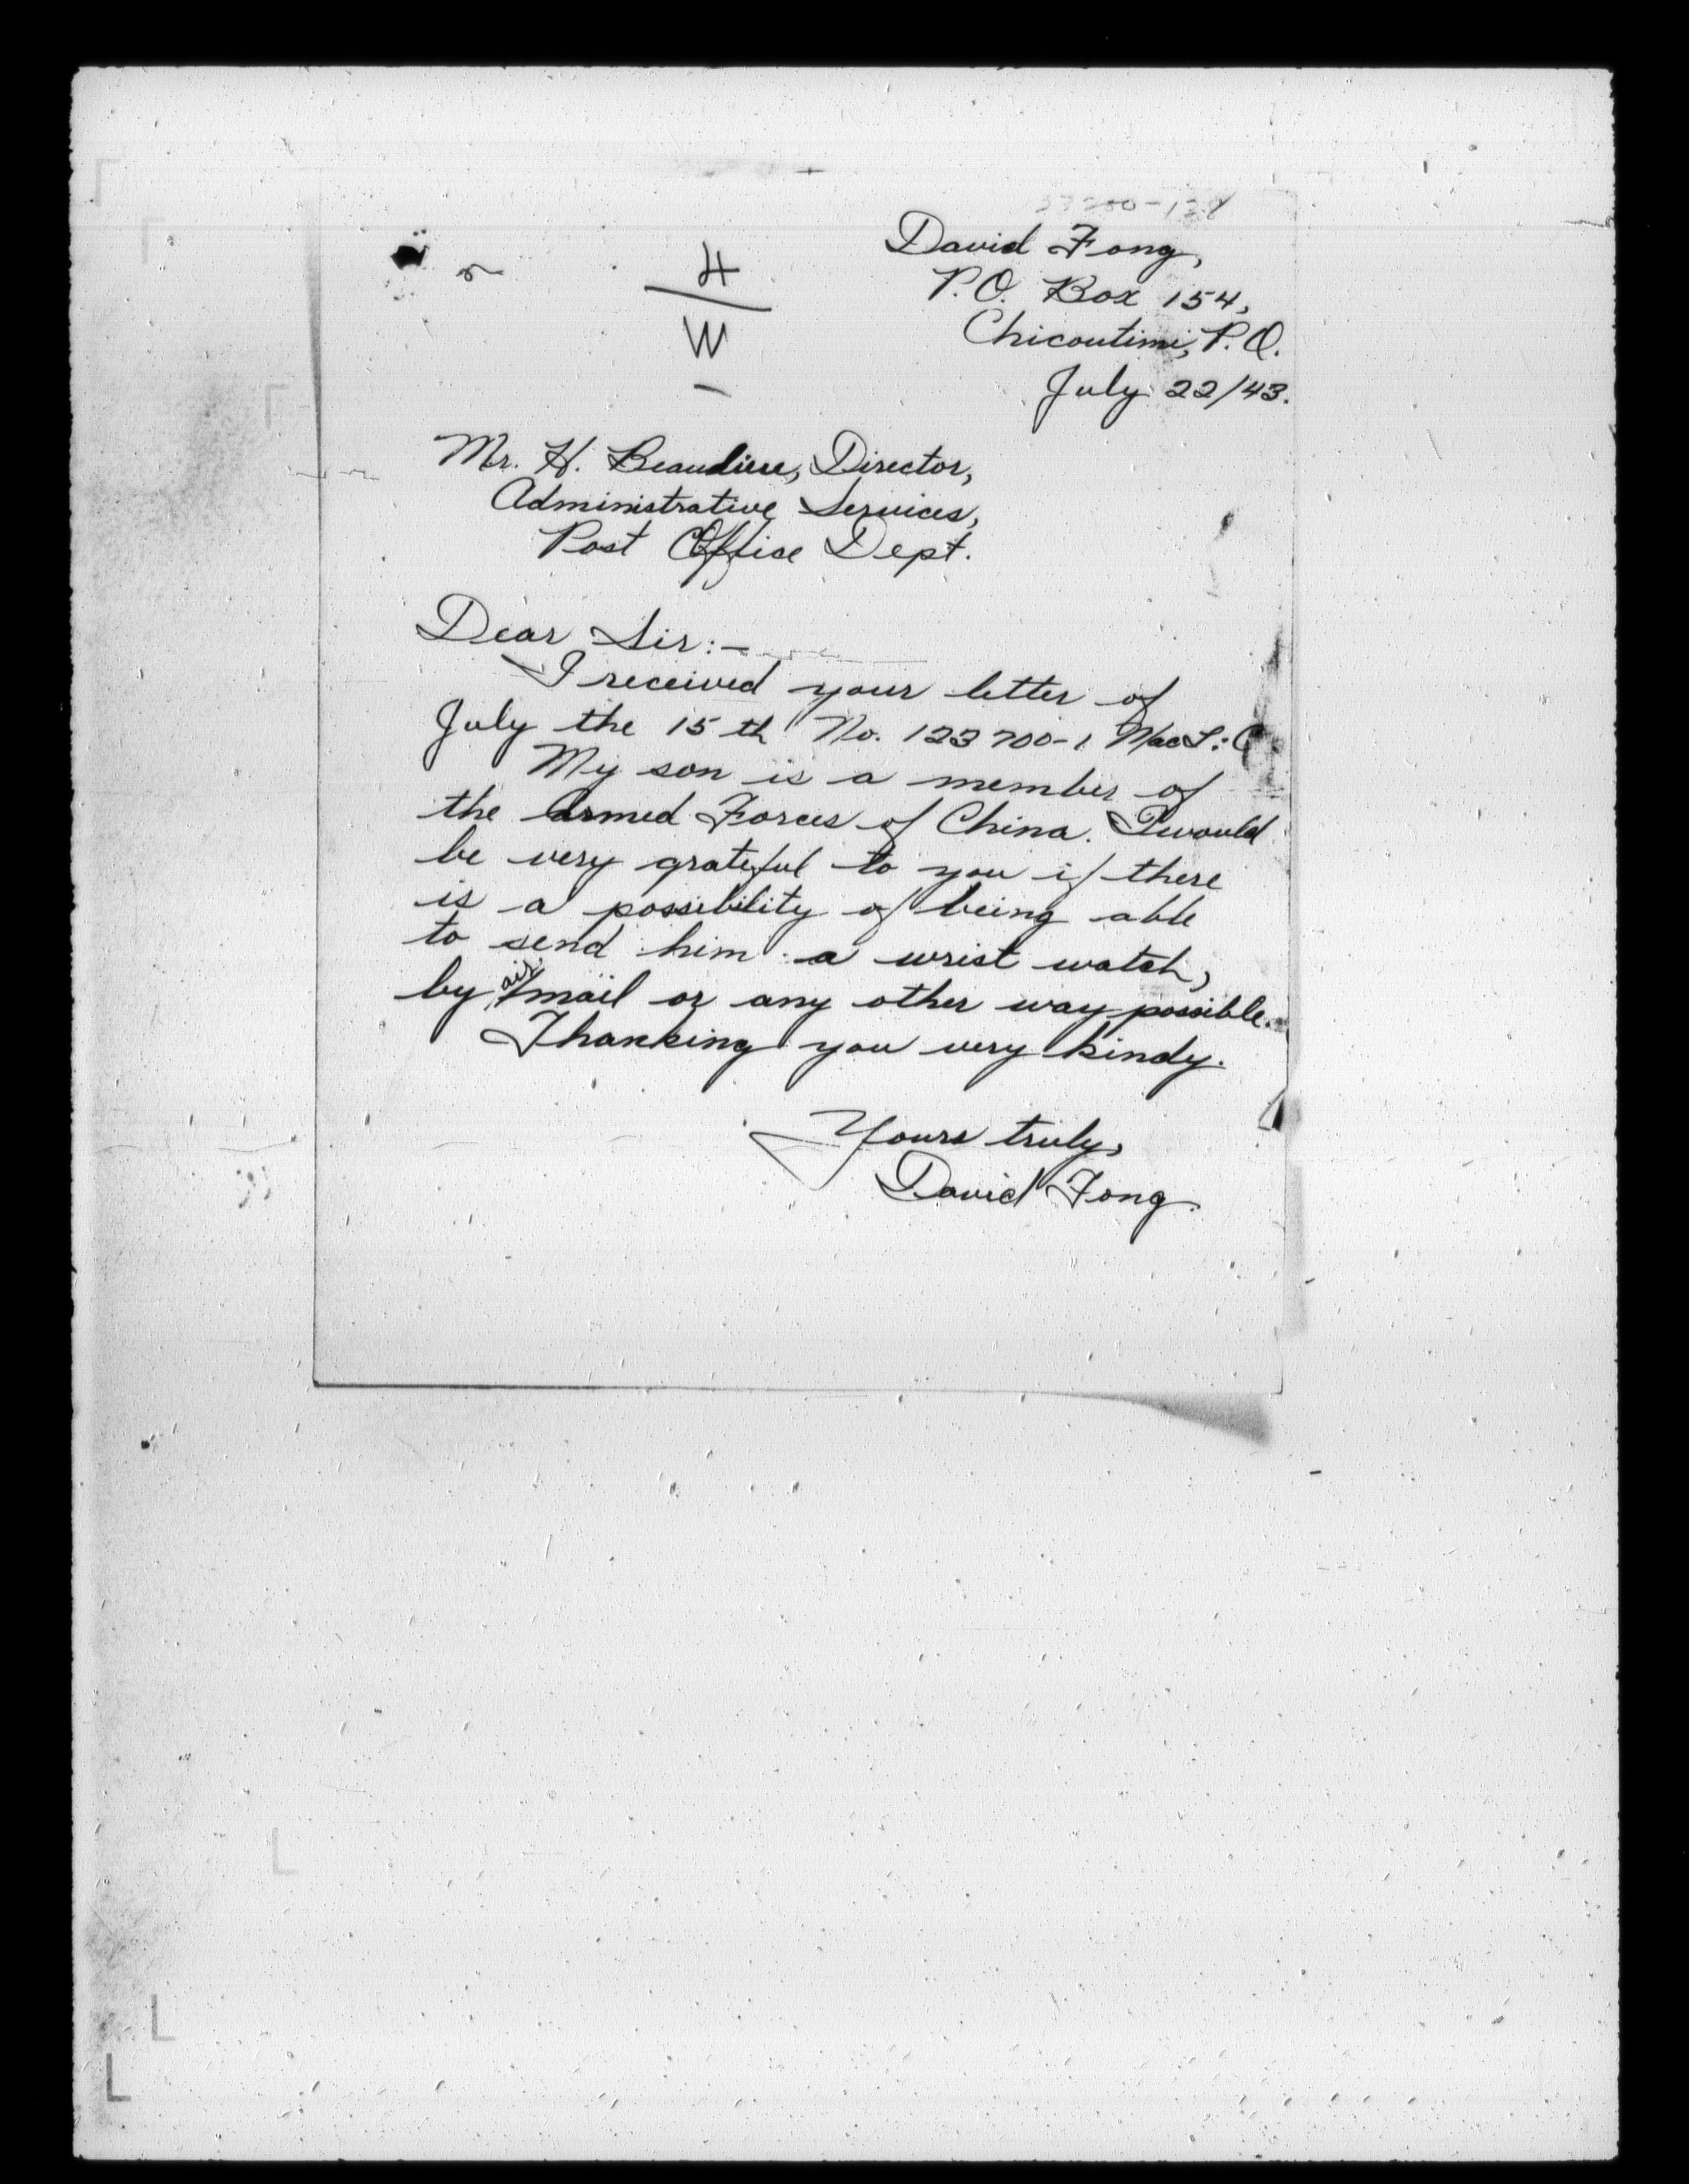 David Fong,
P.O. Box 154,
Chicoutimi, P.Q.
July 22/43.
4
W
Mr. H. Beaulieu, Director,
Administrative Services,
Post Office Dept.
Dear Sir:-
I received your letter of
July the 15th No. 123700-1 MacL:C
My son is a member of
the Armed Forces of China. I would
be very grateful to you if there
is a possibility of being able
to send him a wrist watch,
by air mail or any other way possible.
Thanking you very kindy.
Yours truly,
David Fong.